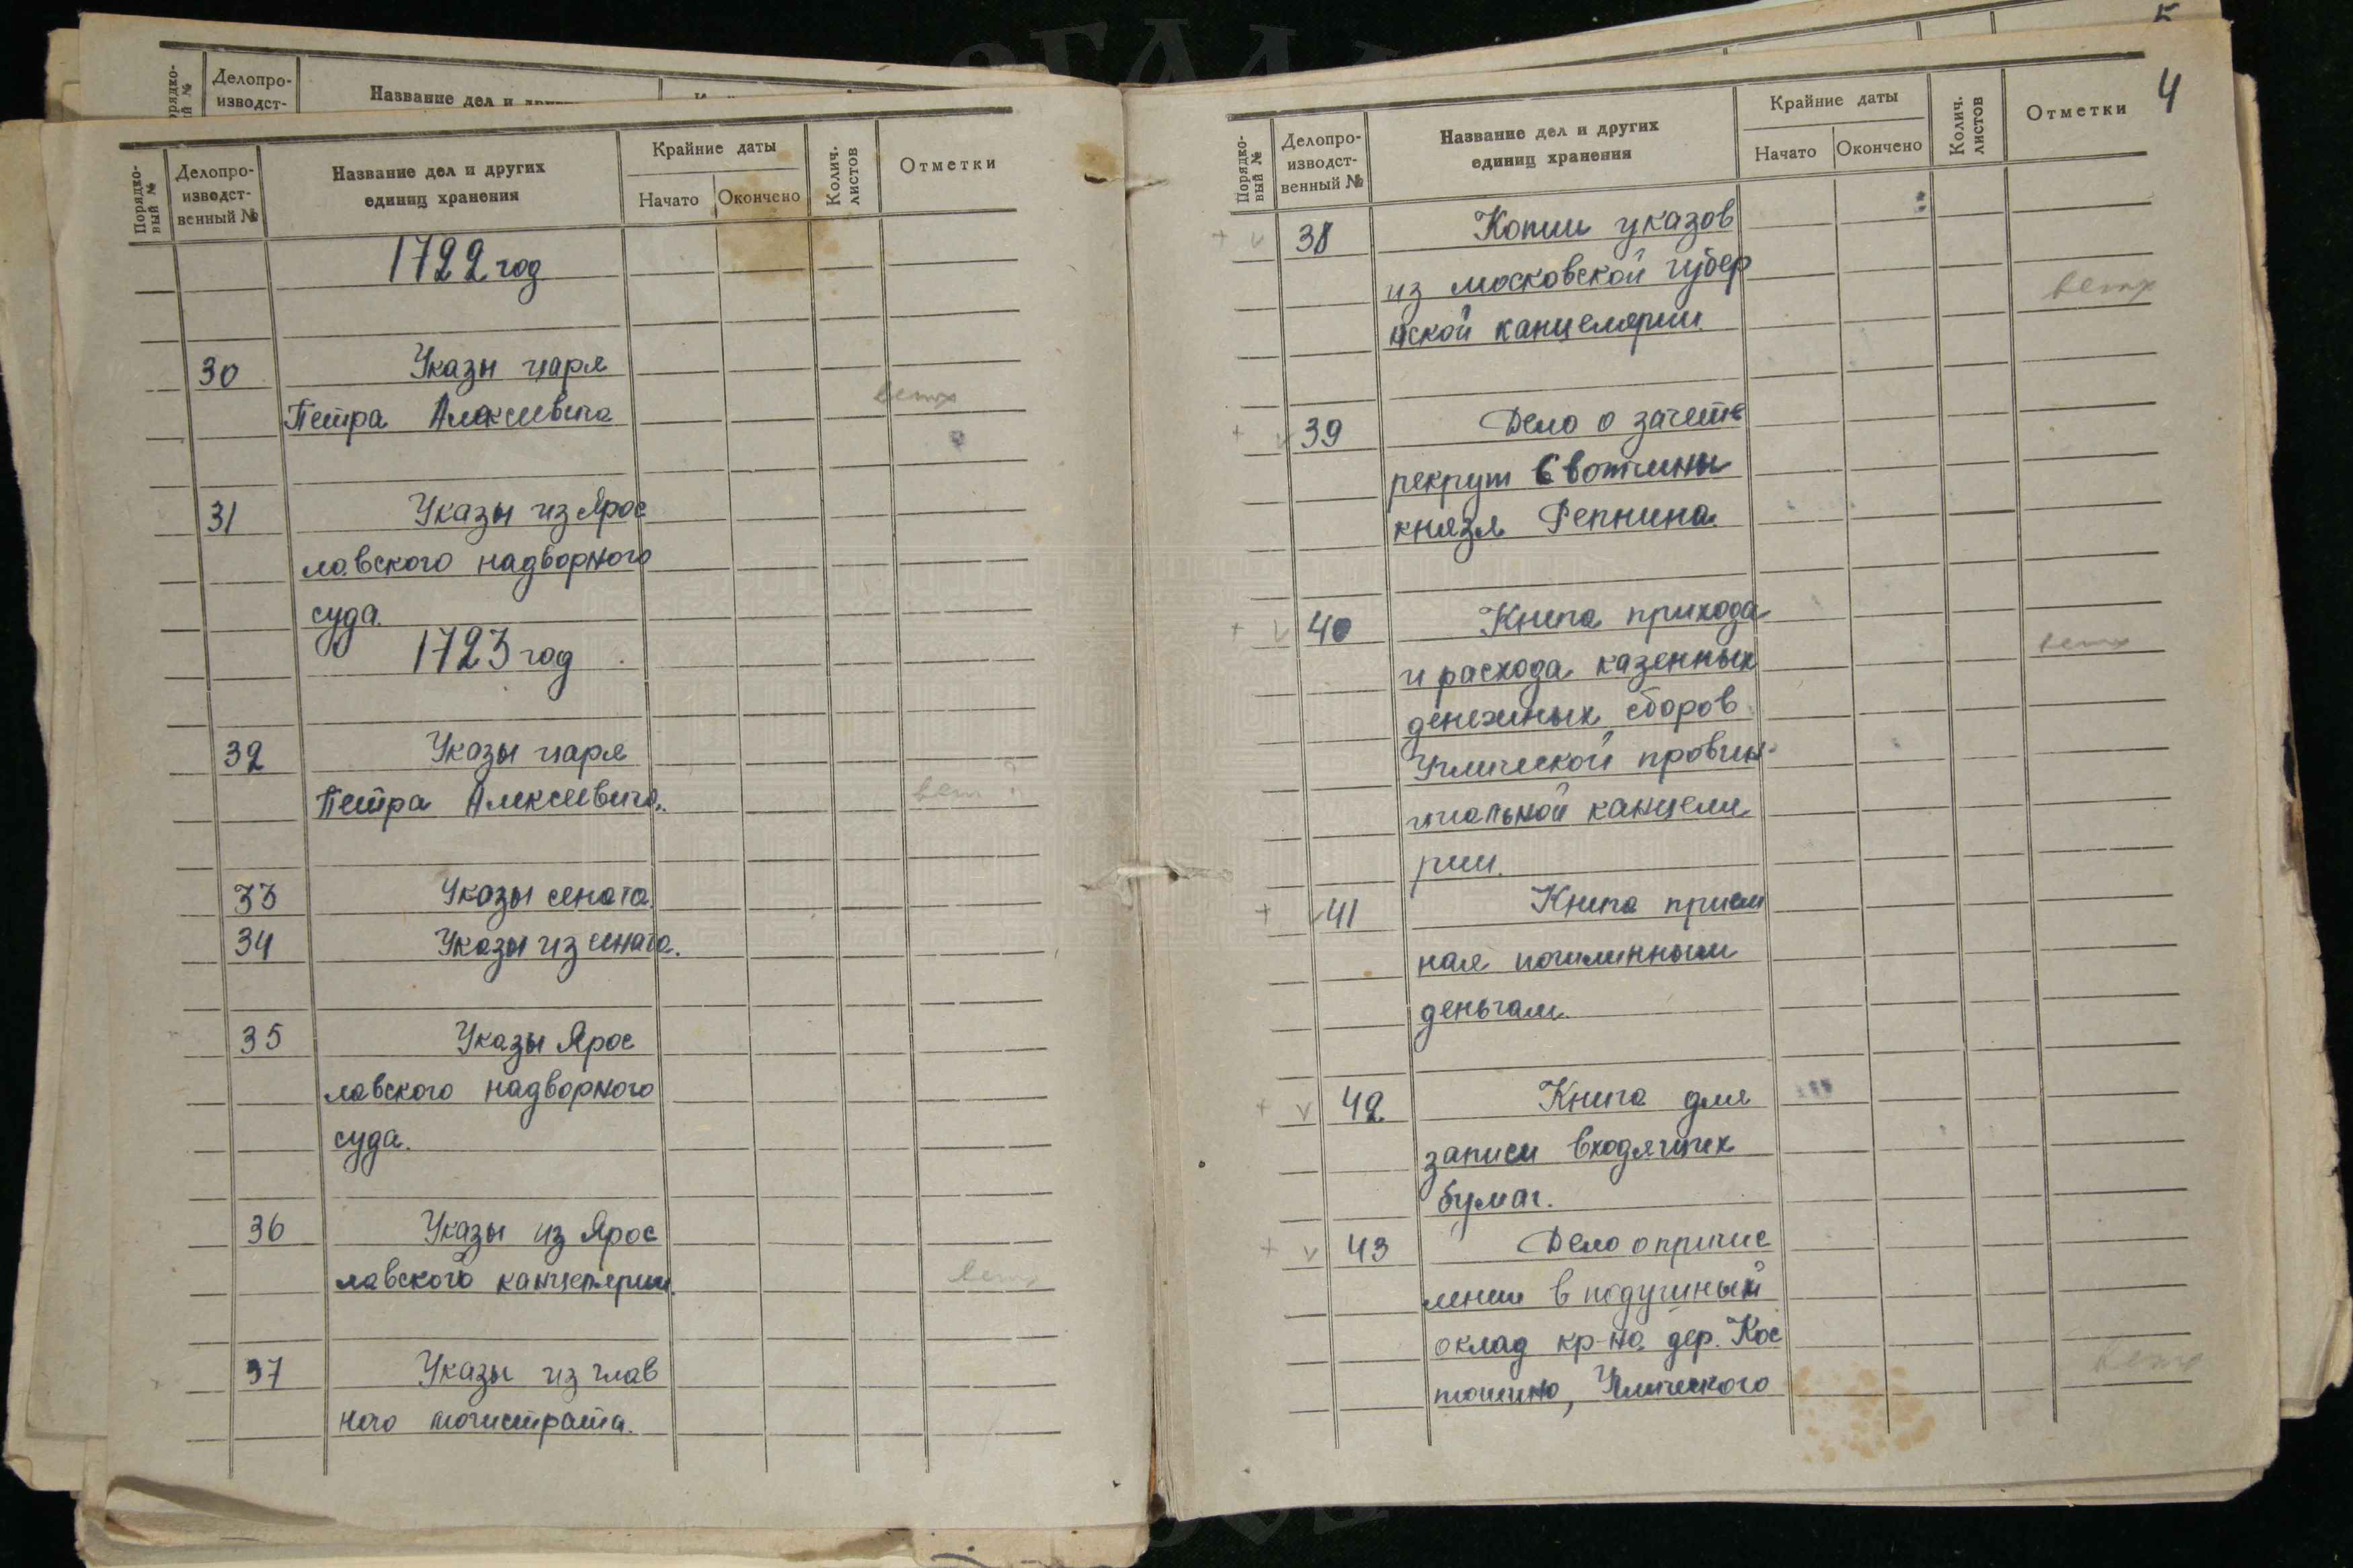 Делопро-
изводст-
Название дел и
5
Порядко-
вый №
Делопро-
изводст-
венный №
Название дел и других
единиц хранения
Крайние даты
Начато
Окончено
Колич.
листов
Отметки
1722 год
30 Указы царя
Петра Алексеевича
ветх
31 Указы из Ярос
лавского надворного
суда.
1723 год
32 Указы царя
Петра Алексеевича.
ветх
33 Указы сената.
34 Указы из сената.
35 Указы Ярос
лавского надворного
суда.
36 Указы из Ярос
лавского канцелярии.
ветх
37 Указы из глав
ного магистрата.
4
Порядко-
вый №
Делопро-
изводст-
венный №
Название дел и других
единиц хранения
Крайние даты
Начато
Окончено
Колич.
листов
Отметки
+ v 38 Копии указов
из московской губер
нской канцелярии.
ветх
+ v 39 Дело о зачете
рекрут в вотчины
князя Репнина.
+ v 40 Книга прихода
и расхода казенных
ветх
денежных сборов
Угличской провин-
циальной канцеля
рии.
+ v 41 Книга прием
ная пошлинным
деньгам.
+ v 42 Книга для
записи входящих
бумаг.
+ v 43 Дело о причис
лении в подушный
оклад кр-на дер. Кос
тюшино, Угличского
ветх